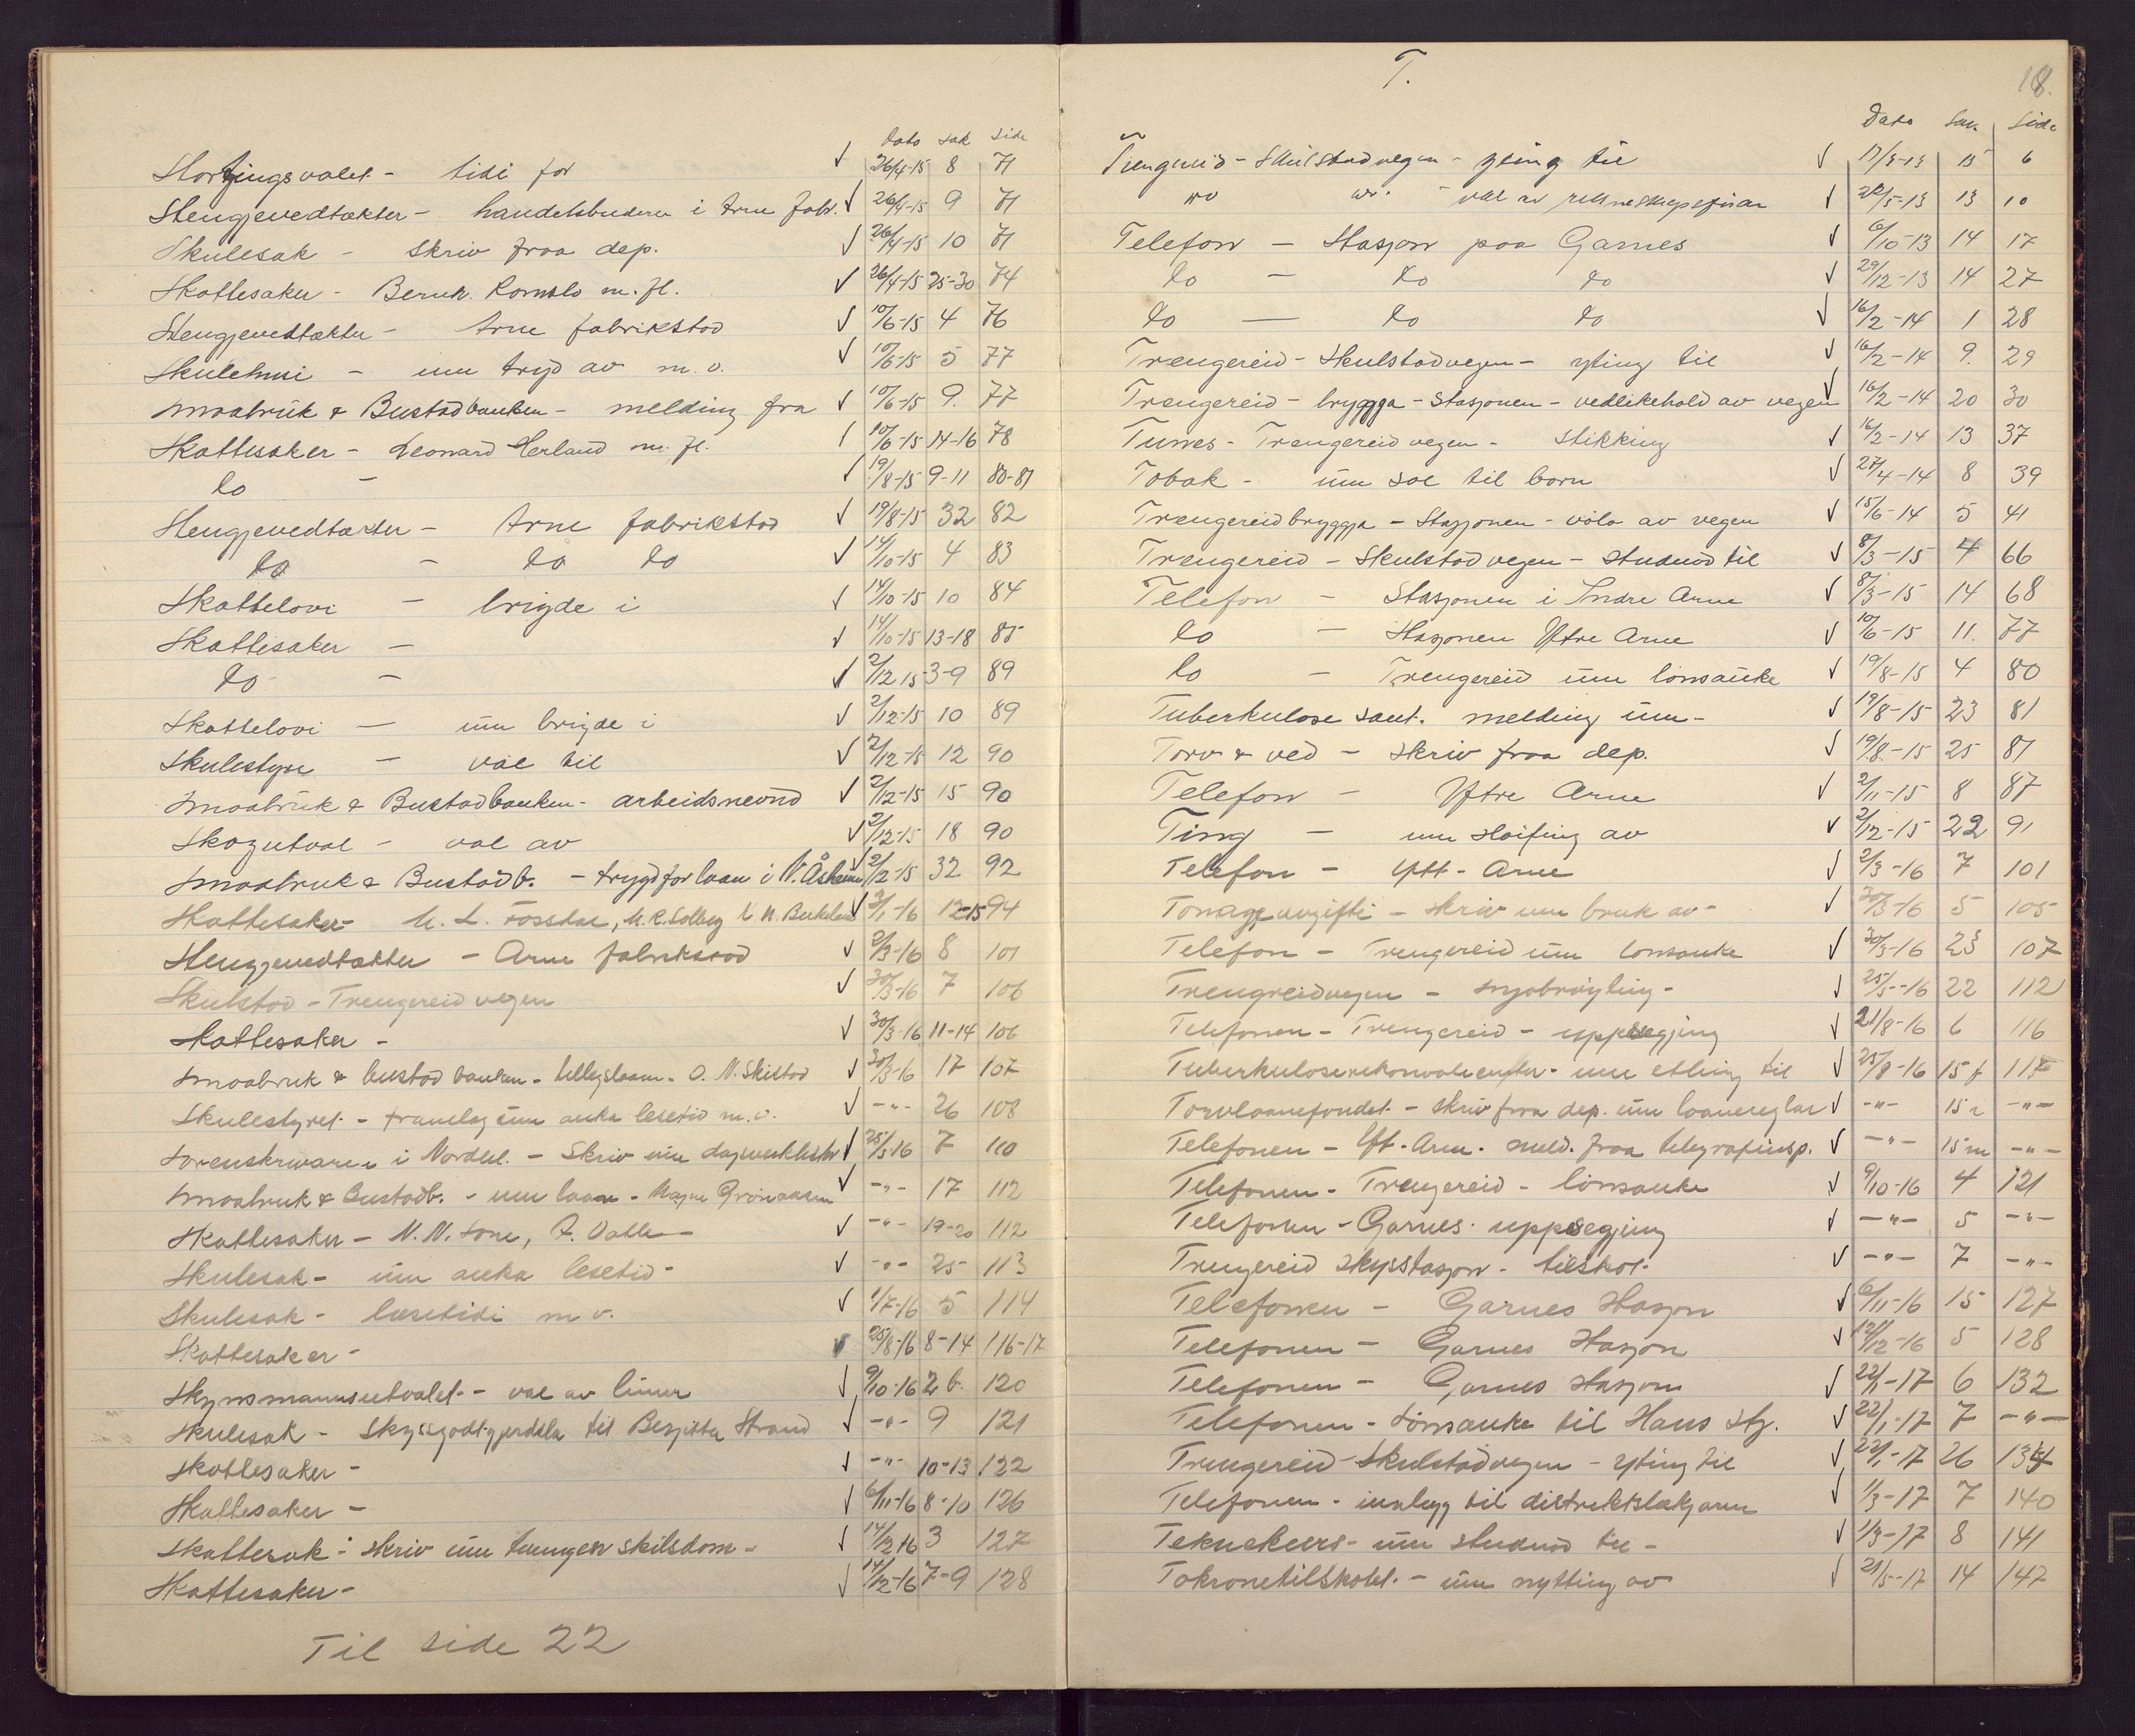 Dato sak side
Stortingsvalet - tidi for √ 26/4-15 8 71
Stengjevedtækter - handelsbuderer i Arne fabr. √ 26/4-15 9 71
Skulesak - skriv fraa dep. √ 26/4-15 10 71
Skattesaker - Bernh. Romslo m. fl. √ 26/4-15 25-30 74
Stengjevedtækter - Arne fabrikstad √ 10/6-15 4 76
Skulehus - um tryd av m. v. √ 10/6-15 5 77
Smaabruk & Bustadbanken - melding fra √ 10/6-15 9 77
Skattesaker - Leonard Herland m. fl. √ 10/6-15 14-16 78
do - √ 19/8-15 9-11 80-81
Stengjevedtækter - Arne fabrikstad √ 19/8-15 32 82
do - do do √ 14/10-15 4 83
Skattelovi - brigde i √ 14/10-15 10 84
Skattesaker - √ 14/10-15 13-18 85
do - √ 2/12 15 3-9 89
Skattelovi - um brigde i √ 2/12-15 10 89
Skulestyre - val til √ 2/12-15 12 90
Smaabruk & Bustadbanken - arbeidsnevnd √ 2/12-15 15 90
Skogutval - val av √ 2/12-15 18 90
Smaabruk & Bustadb. - trygd for laan i N. Åsheim √ 2/12-15 32 92
Skattesaker - M. L. Fossdal, M. R. Solberg √ 3/1-16 12-15 94
Stengjevedtækter - Arne fabrikstad √ 2/3-16 8 101
Skulstad - Trengereid vegen √ 30/3-16 7 106
Skattesaker - √ 30/3-16 11-14 106
Smaabruk & bustad banken - tilleggslaan - O. N. Skistad √ 30/3-16 17 107
Skulestyret - framlag um auka lesetid m. v. √ -"- 26 108
Sorenskrivaren i Nordhl. - Skriv um dagsverklister √ 25/5 16 7 110
Smaabruk & Bustadb. - um laan - Magne Grønaasen √ -"- 17 112
Skattesaker - N. N. Tone, A. Dahle - √ -"- 19-20 112
Skulesak - um auka lesetid - √ -"- 25 113
Skulesak - læsetidi m v. √ 1/7-16 5 114
Skattesaker - √ 25/8-16 8-14 116-17
Skynsmannsutvalet - val av limer √ 9/10-16 2 b. 120
Skulesak - Skyssgodtgjerdsla til Bergitta Strand √ -"- 9 121
Skattesaker - √ -"- 10-13 122
Skattesaker - √ 6/11-16 8-10 126
Skattesak - skriv um tvungen skilsdom - √ 14/12 16 3 127
Skattesaker - √ 14/12-16 7-9 128
Til side 22
T.
18.
Dato Sak Side
Trengreid - Skulstadvegen - yting til √ 17/3-13 15 6
do do - val av rekneskapsførar √ 22/5-13 13 10
Telefon - Stasjon paa Garnes √ 6/10-13 14 17
do - do do √ 29/12-13 14 27
do - do do √ 16/2-14 1 28
Trengereid - Skulstadvegen - yting til √ 16/2-14 9. 29
Trengereid - bryggja - Stasjonen - vedlikehald av vegen √ 16/2-14 20 30
Tunes - Trengereid vegen - stikking √ 16/2-14 13 37
Tobak - um sal til born √ 27/4-14 8 39
Trengereidbryggja - Stasjonen - vøla av vegen √ 15/6-14 5 41
Trengereid - Skulstad vegen - studnad til √ 8/3-15 4 66
Telefon - Stasjonen i Indre Arne √ 8/3-15 14 68
do - Stasjonen Ytre Arne √ 10/6-15 11. 77
do - Trengereid um lønsauke √ 19/8-15 4 80
Tuberkulose sant. melding um - √ 19/8-15 23 81
Torv & ved - skriv fraa dep. √ 19/8-15 25 81
Telefon - Yftre Arne √ 2/11-15 8 87
Ting - um skifting av √ 2/12-15 22 91
Telefon - Yft - Arne √ 2/3-16 7 101
Tonage avgifti - skriv um bruk av - √ 30/3-16 5 105
Telefon - Trengereid um lønsauke √ 30/3-16 23 107
Trengreidvegen - snjobrøyting - √ 25/5-16 22 112
Telefonen - Trengereid - uppsegjing √ 21/8-16 6 116
Tuberkuloserekonvalecenter - um etling til √ 25/8-16 15 f 117
Torvlaanefondet - skriv fraa dep. um laanereglar √ -"- 15 i -"-
Telefonen - Yft. Arne - meld. fraa telegrafinsp. √ -"- 15 m -"-
Telefonen - Trengereid - lønsauke √ 9/10-16 4 121
Telefonen - Garnes - uppsegjing √ -"- 5 -"-
Trengereid skysstasjon - tilskot √ -"- 7 -"-
Telefonen - Garnes Stasjon √ 6/11-16 15 127
Telefonen - Garnes Stasjon √ 14/12-16 5 128
Telefonen - Garnes stasjon √ 22/1-17 6 132
Telefonen - Lønsauke til Haus stj. √ 22/1-17 7 -"-
Trengereid - Skulstadvegen - yting til √ 22/1-17 26 134
Telefonen - innlegg til distriktslækjaren √ 1/3-17 7 140
Teknekurs - um studnad til - √ 1/3-17 8 141
Tokronetilskotet - um nytting av √ 21/5-17 14 147